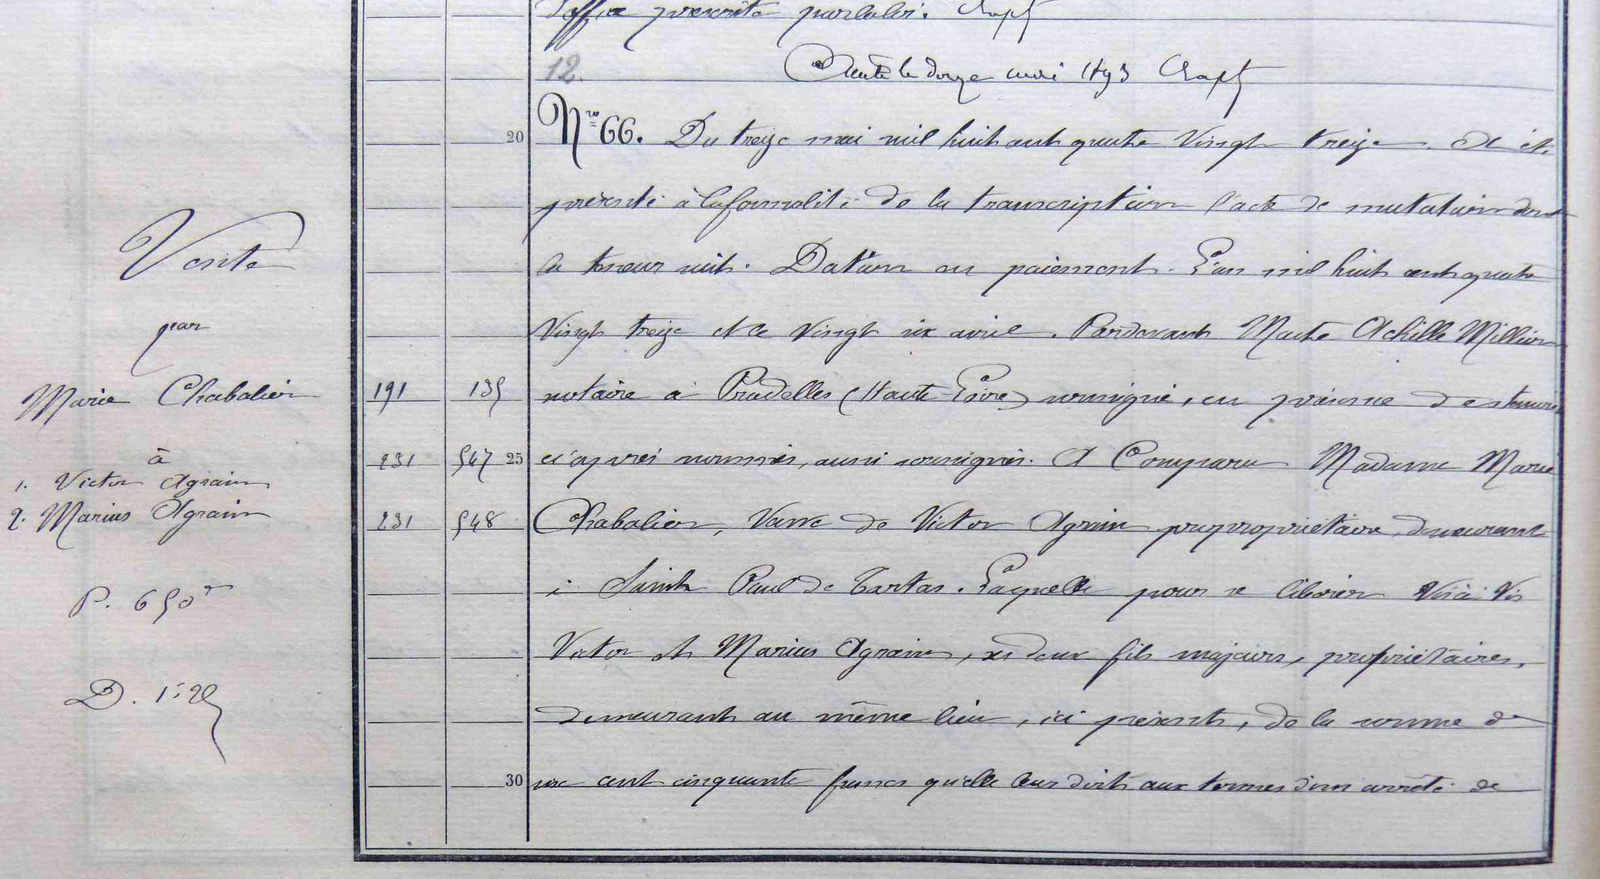 d'office prescrite par la loi. Chapt
12. Clauté le douze mai 1893 Chapt
20 N.ro 66. Du treize mai mil huit cent quatre vingt treize. A été
Vente
présenté à la formalité de la transcription l'acte de mutation dont
la teneur suit. Dation en paiement. L'an mil huit cent quatre
par
vingt treize et le vingt six avril. Pardevant Maitre Achille Millien
Marie Chabalier 191 135 notaire à Pradelles (Haute-Loire) soussigné, en présence des témoins
à
1. Victor Agrain 231 547 25 ci-après nommés, aussi soussignés. A Comparu Madame Marie
2. Marius Agrain 231 548 Chabalier, Veuve de Victor Agrain propropriétaire, demeurant
P. 650 frs
à Saint Paul de Tartas. Laquelle pour se libérer Vis à Vis
Victor et Marius Agrain, ses deux fils majeurs, propriétaires,
D. 1.25
demeurant au même lieu, ici présents, de la somme de
30 six cent cinquante francs qu'elle leur doit aux termes d'un arrêté de